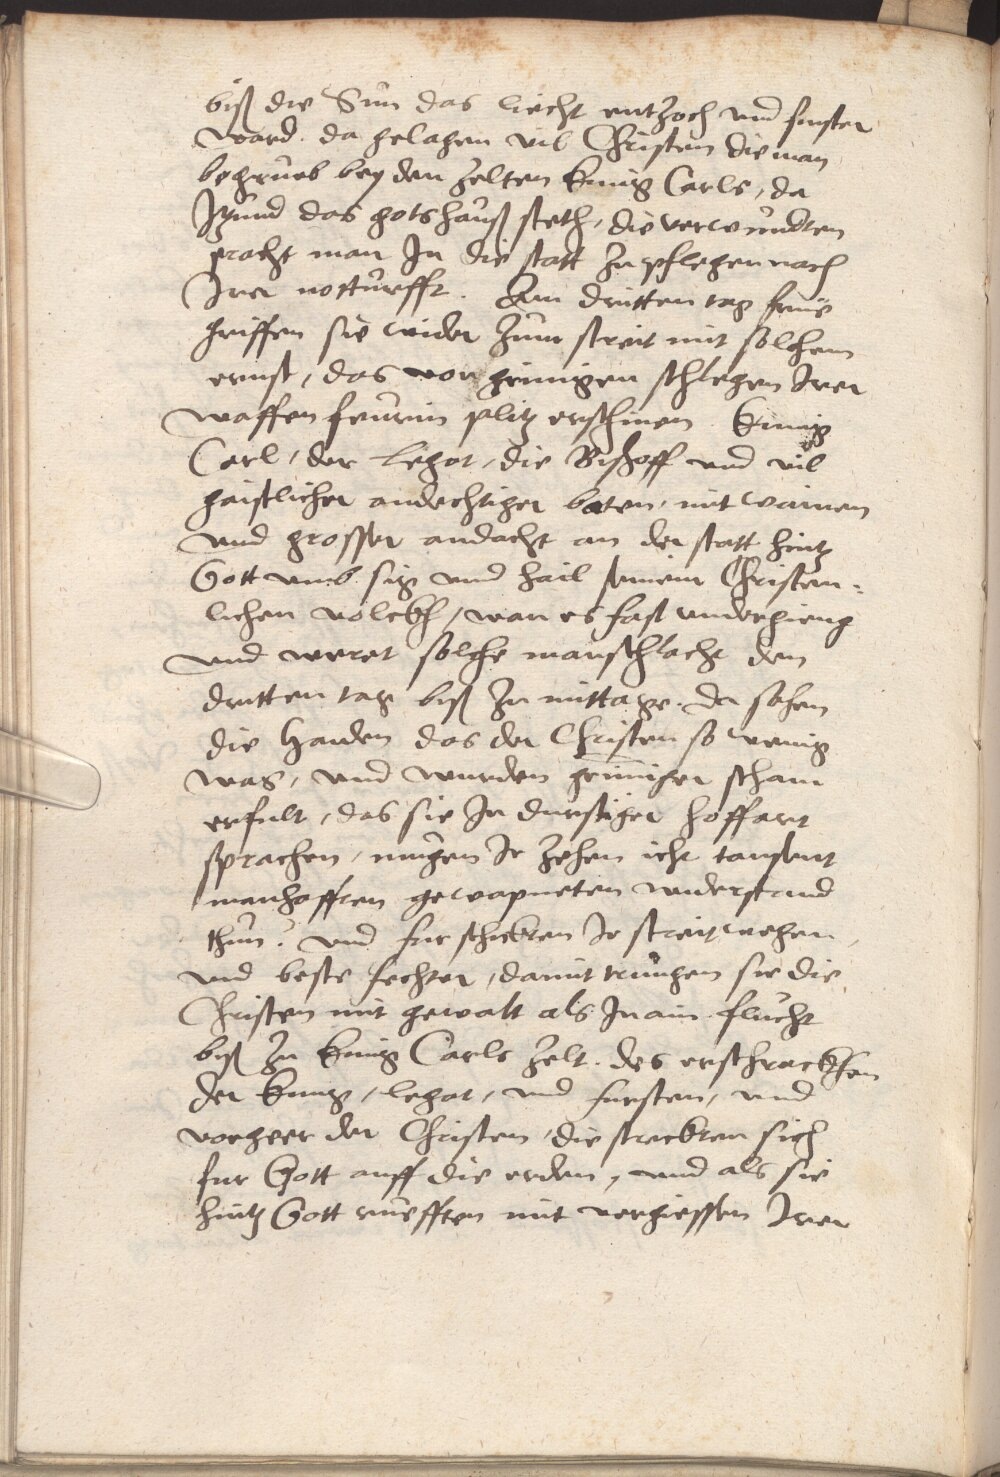 biß die Sün das liecht entzoch und finster
ward. da gelagen vil Christen die man
begrueb bey den zelten kunig Carls, da
Jtzund das gotshauß steth, die verwundten
pracht man Jn die statt zu pflegen nach
Jrer notturfft. Am dritten tag frue
griffen sie wider zum streit mit solchem
ernst, das von grimigen schlegen Jrer
waffen feurin plitz erschinen. Kunig
Carl, der Legat, die Bischoff und vil
gaistlicher andechtiger baten, mit wainen
und grosser andacht an der statt hintz
Gott umb sig und hail seinem Christen-
lichen volckh, wan es fast undergieng
und weret solche manschlacht den
dritten tag biß zu mittage. da sahen
die Haiden das der Christen so wenig
was, und wurden grimiger scham
erfult, das sie Jn durstiger hoffart
sprachen, mugen Jr zehen icht tausent
manhafften gewapneten widerstand
thun? und furschickten Jr streit
und beste fechter, damit trungen sie die
Christen mit gewalt als Jn ain flucht
biß zu kunig Carls zelt. des erschrackhen
der kunig, legat, und fursten, und
der Christen, die streckten sich
fur Gott auff die erden, und als sie
hintz Gott ruefften mit vergiessen Jrer